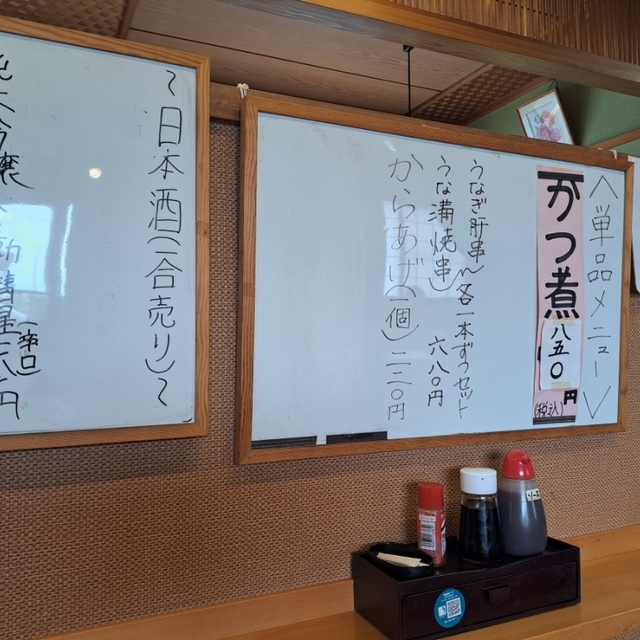 〈単品メニュー〉
かつ煮 八五〇円
(税込)
うなぎ肝串
うな蒲焼串
各一本ずつセット
六八〇円
からあげ(一個) 二二〇円
〜日本酒(一合売り)〜
(辛口)